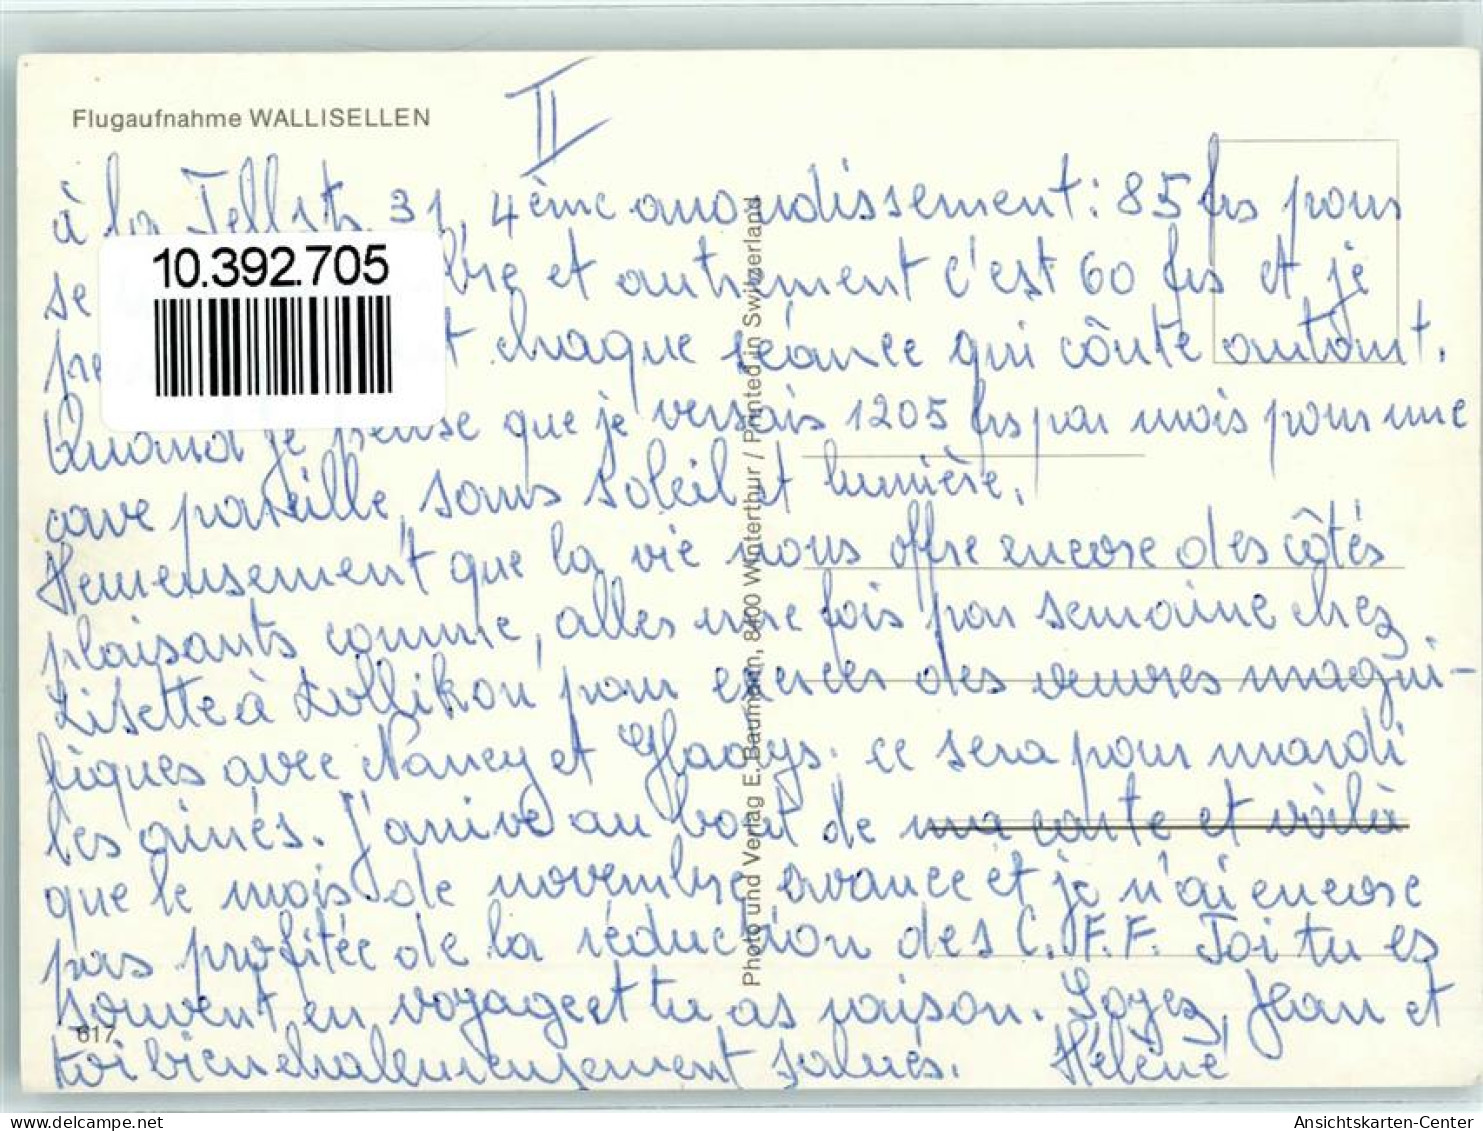 Flugaufnahme WALLISELLEN
II
à la Tellstr. 31, 4ème arrondissement: 85 frs pour
se et autrement c'est 60 frs et je
chaque séance qui coûte autant.
10.392.705
Quand je pense que je versais 1205 frs par mois pour une
cave pareille, sans soleil et lumière.
Heureusement que la vie nous offre encore des côtés
plaisants comme, aller une fois par semaine chez
Lisette à Zollikon pour exercer des œuvres magni-
fiques avec Nancy et Gladys. ce sera pour mardi
les aînés. J'arrive au bout de ma carte et voilà
que le mois de novembre avance et je n'ai encore
pas profitée de la réduction des C.F.F. Toi tu es
souvent en voyage et tu as raison. Soyez, Jean et
toi bien chaleureusement salués. Hélène
617
Photo und Verlag E. Baumann, 8400 Winterthur / Printed in Switzerland
Ansichtskarten-Center